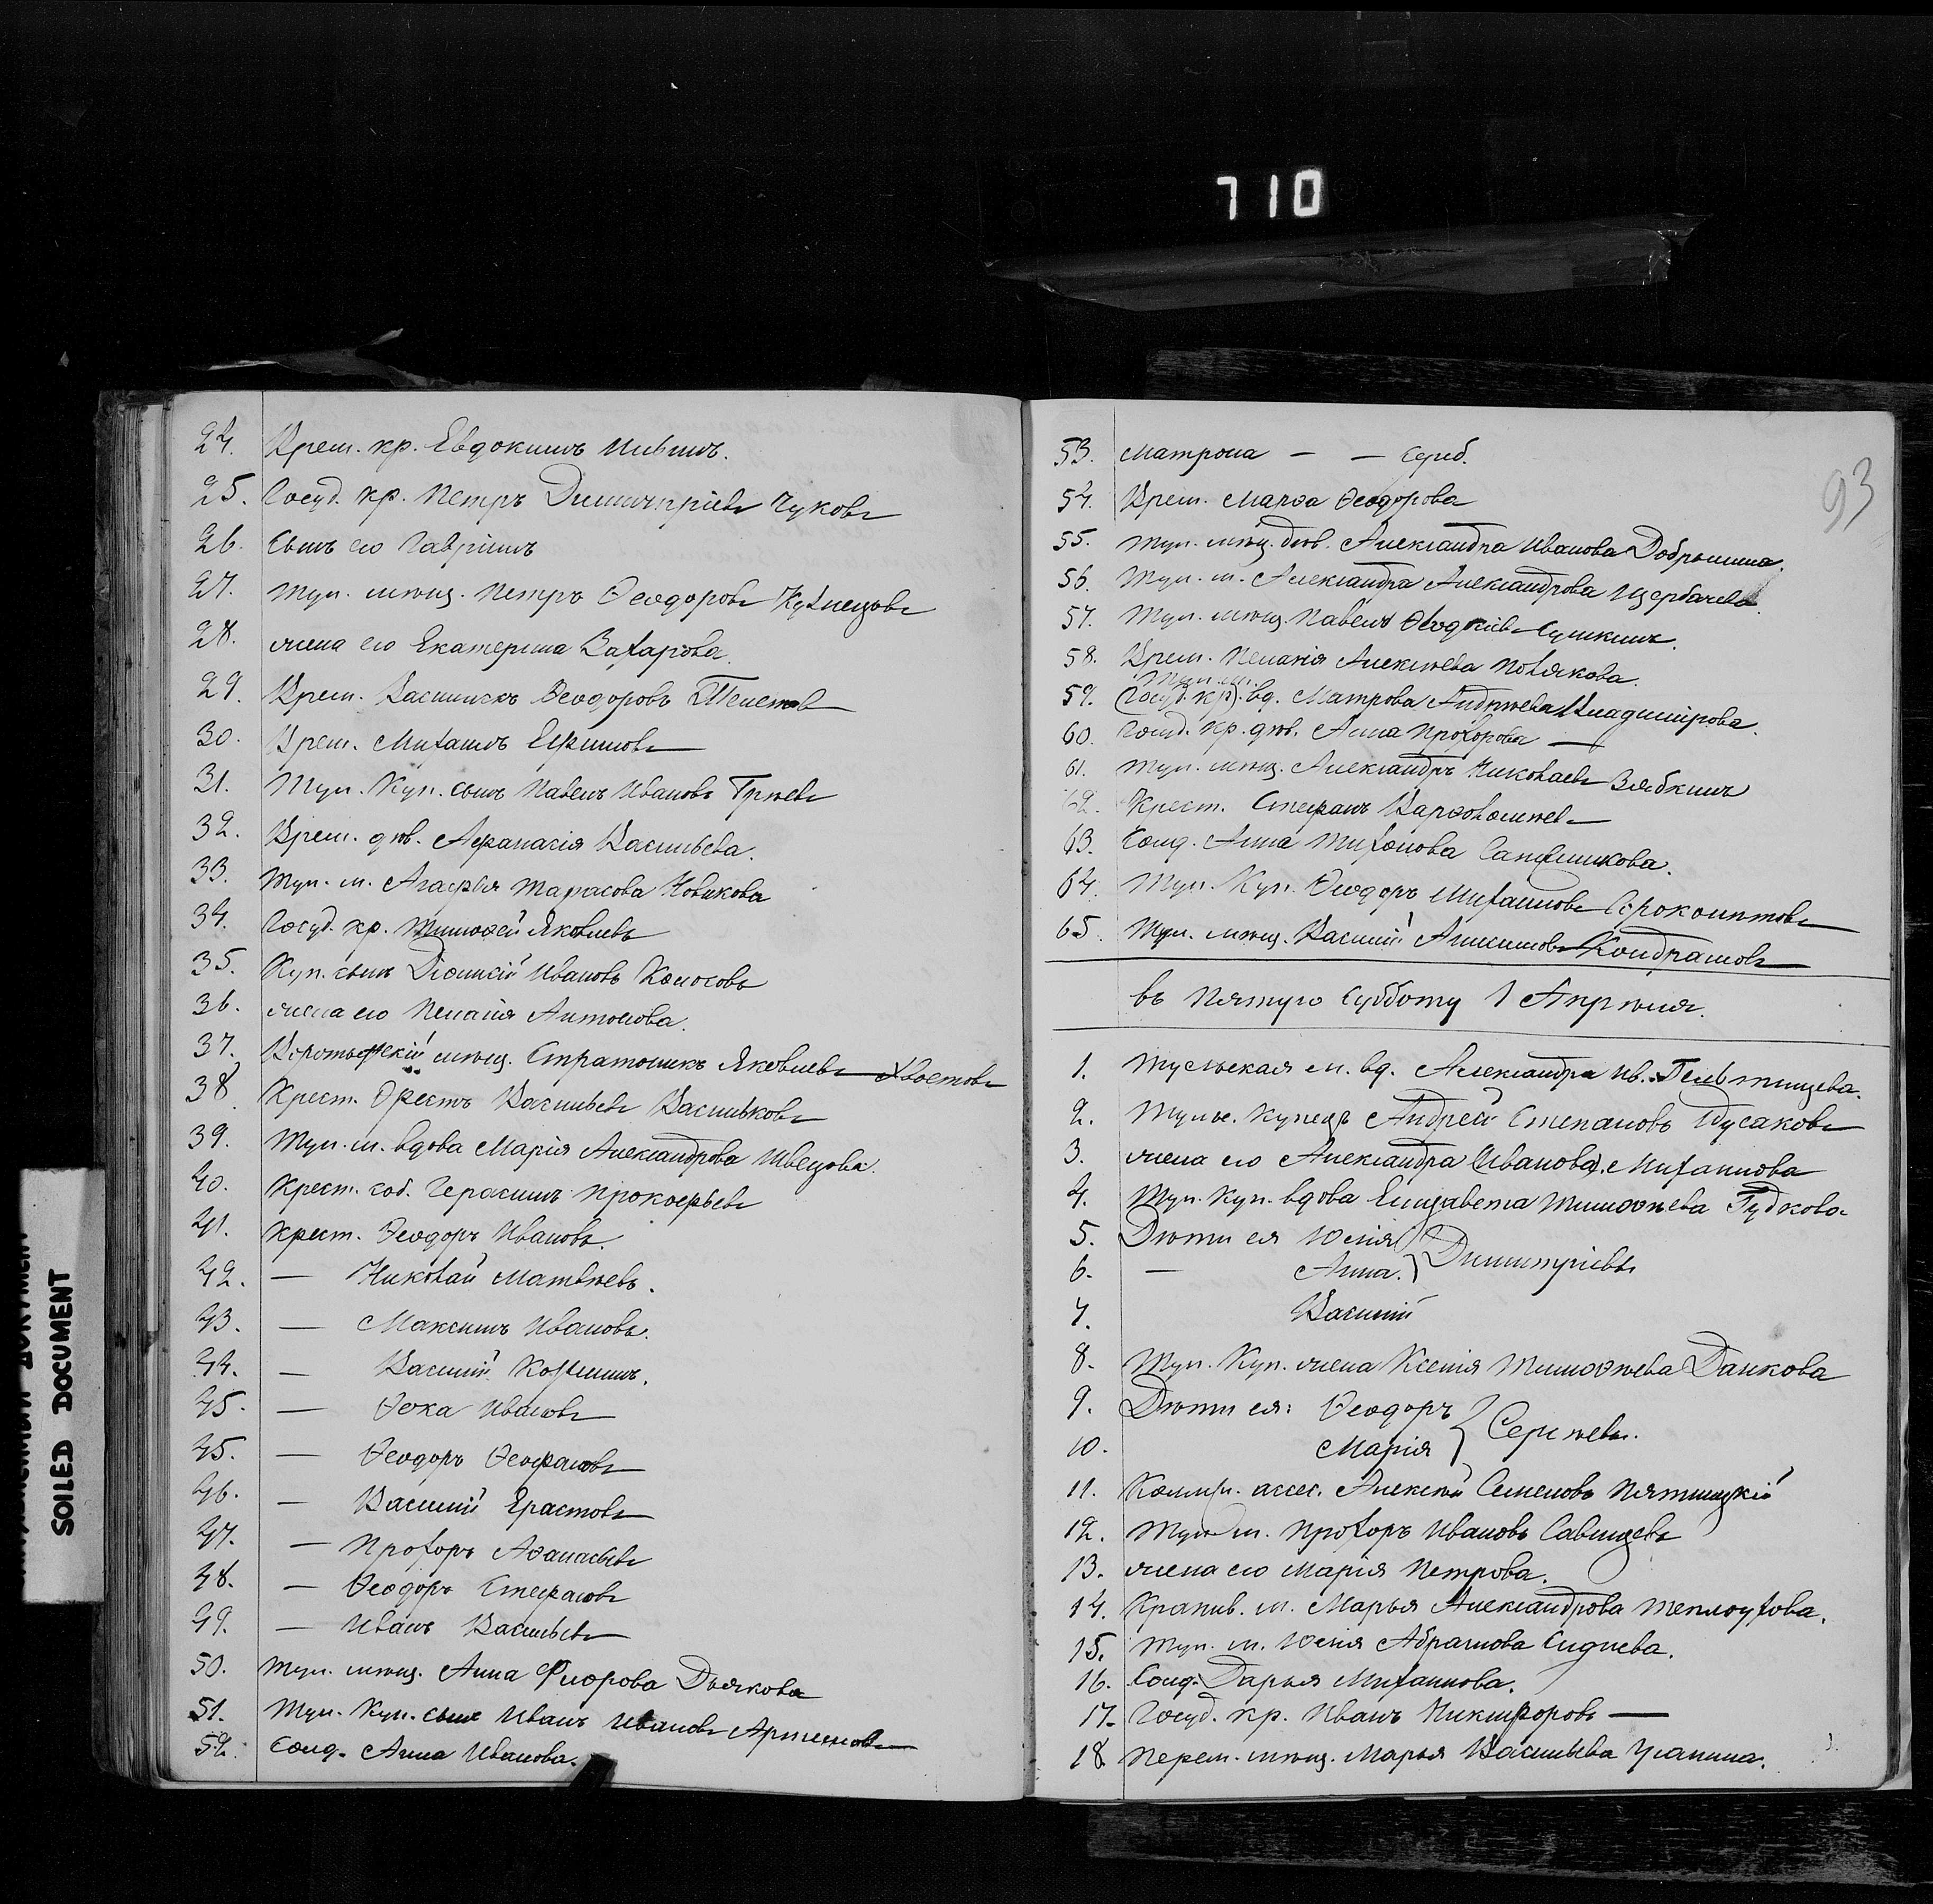 710
24. Крест. кр. Евдокимъ Ивинъ.
25. Госуд. кр. Петръ Димитріевъ Чуковъ
26. Сынъ его Гавріилъ
27. Тул. мѣщ. Петръ Ѳеодоровъ Кузнецовъ
28. жена его Екатерина Захарова.
29. Крест. Василискъ Ѳеодоровъ
30. Крест. Михаилъ Ефимовъ
31. Тул. Куп. сынъ Павелъ Ивановъ Грѣевъ
32. Крест. дѣв. Афанасія Васильева.
33. Тул. м. Агафья Тарасова Новикова
34. Госуд. кр. Тимоѳей Яковлевъ
35. Куп. сынъ Діонисій Ивановъ Колосовъ
36. жена его Пелагія Антонова.
37. мѣщ. Стратоникъ Яковлевъ Хвостовъ
38. Крест. Орестъ Васильевъ Васильковъ
39. Тул. м. вдова Марія Александрова Швецова.
40. Крест. соб. Герасимъ Прокофьевъ
41. крест. Ѳеодоръ Ивановъ.
42. — Николай Матвѣевъ.
43. — Максимъ Ивановъ.
44. — Василій Козминъ.
45. — Ѳока Ивановъ
45. — Ѳеодоръ Ѳеофановъ
46. — Василій Ерастовъ
47. — Прохоръ Аѳанасьевъ
48. — Ѳеодоръ Стефановъ
49. — Иванъ Васильевъ
50. Тул. мѣщ. Анна Флорова Дьякова
51. Тул. Куп. сынъ Иванъ Ивановъ Артемовъ
52. Солд. Анна Иванова.
SOILED DOCUMENT
93
53. Матрона — —
54. Крест. Марѳа Ѳеодорова
55. Тул. мѣщ. дѣв. Александра Иванова Добрынина.
56. Тул. м. Александра Александрова Щербачева.
57. Тул. мѣщ. Павелъ Сушкинъ.
58. Крест. Пелагія Алексѣева Полякова.
Тул. м.
59. (Госуд. кр). вд. Матрона Андреева Владимірова.
60. Госуд. кр. дѣв. Анна Прохорова —
61. Тул. мѣщ. Александръ Николаевъ Зябкинъ
62. Крест. Стефанъ Варѳоломеевъ
63. Солд. Анна Тихонова
64. Тул. Куп. Ѳеодоръ Михаиловъ Сорокоинтовъ
65. Тул. мѣщ. Василій Анисимовъ Кондрашовъ
въ Пятую Субботу 1 Апрѣля.
1. Тульская м. вд. Александра Ив.
2. Тульс. купецъ Андрей Степановъ Гусаковъ
3. жена его Александра (Иванова). Михаилова
4. Тул. Куп. вдова Елизавета Тимоѳеева Гудкова
5. Дѣти ея Юлія } Димитріевы
6. — Анна.
7. Василій
8. Тул. Куп. жена Ксенія Тимоѳеева Данкова
9. Дѣти ея: Ѳеодоръ } Сергѣевы.
10. Марія
11. Коллеж. ассес. Алексѣй Семеновъ Пятницкій
12. Тул. м. Прохоръ Ивановъ Савищевъ
13. жена его Марія Петрова.
14. Крапив. м. Марья Александрова Теплоухова.
15. Тул. м. Юлія Абрамова Сиднева.
16. Солд. Дарья Михаилова.
17. Госуд. кр. Иванъ Никифоровъ —
18. мѣщ. Марья Васильева Усанина.